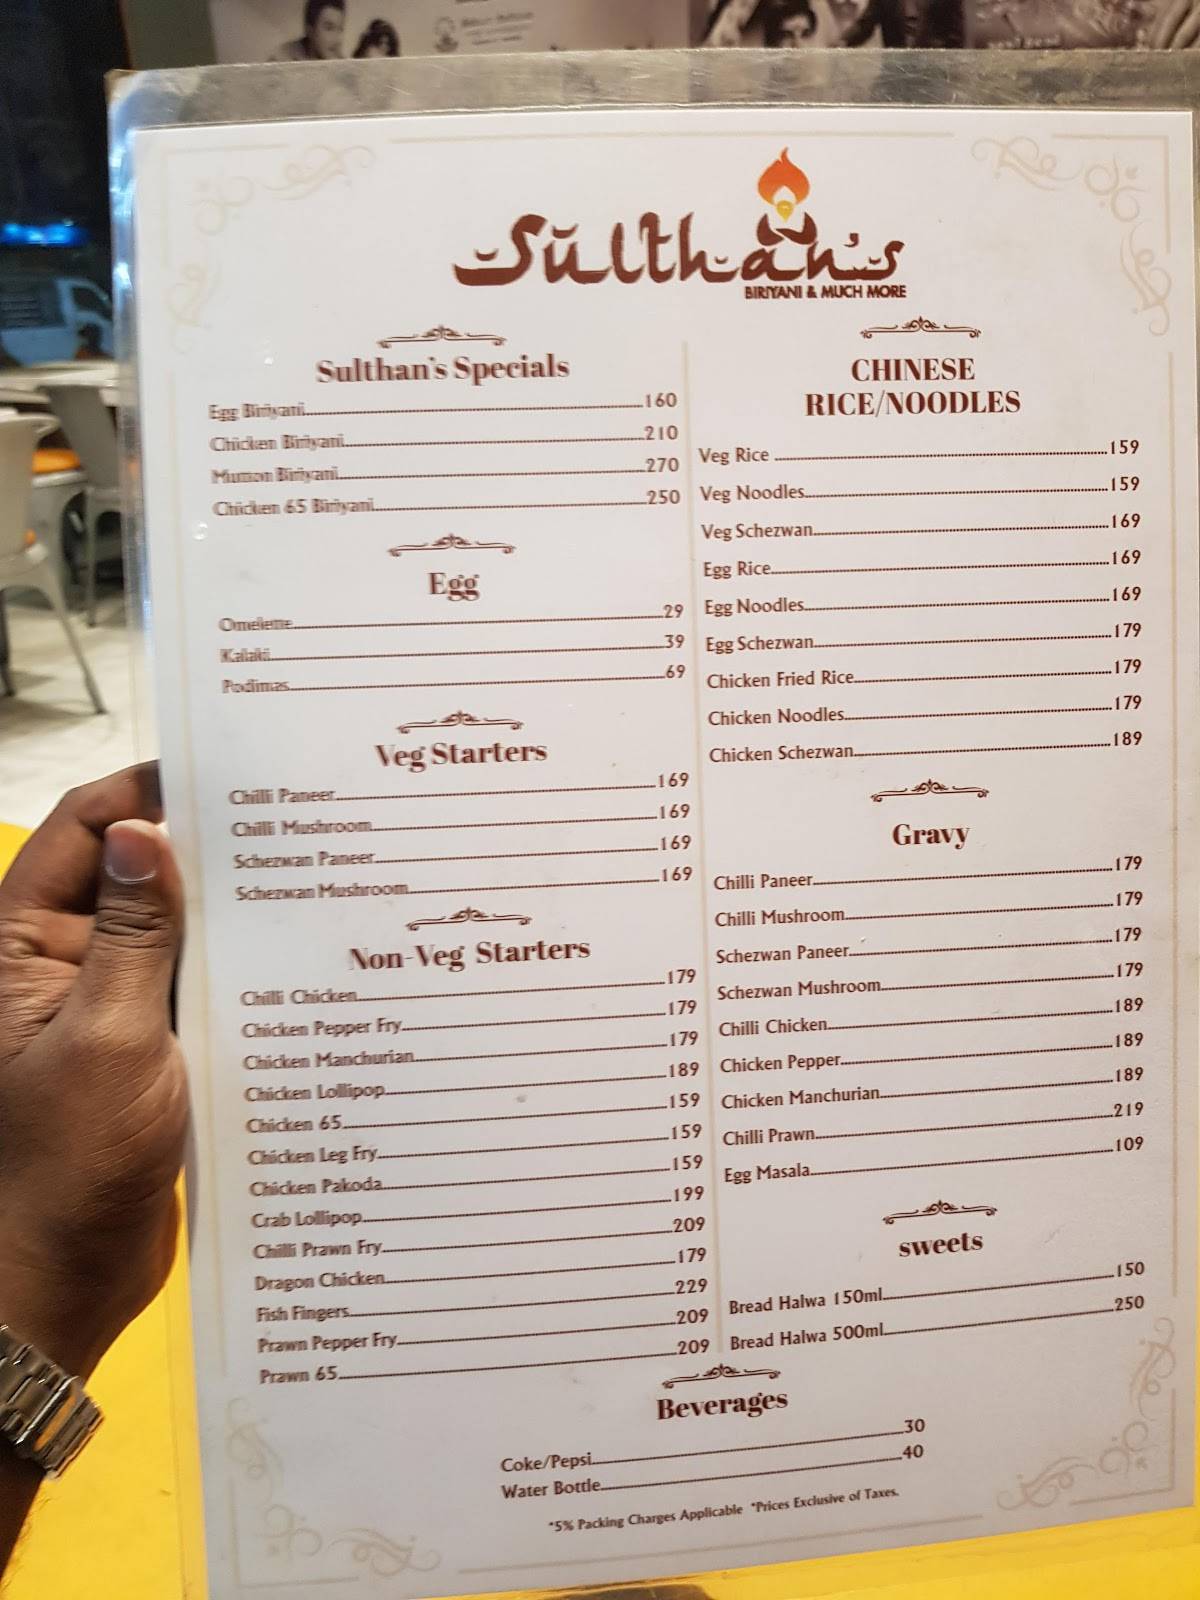 Sulthan's
BIRIYANI & MUCH MORE
Sulthan's Specials
Egg Biriyani 160
Chicken Biriyani 210
Mutton Biriyani 270
Chicken 65 Biriyani 250
Egg
Omelette 29
Kalaki 39
Podimas 69
Veg Starters
Chilli Paneer 169
Chilli Mushroom 169
Schezwan Paneer 169
Schezwan Mushroom 169
Non-Veg Starters
Chilli Chicken 179
Chicken Pepper Fry 179
Chicken Manchurian 179
Chicken Lollipop 189
Chicken 65 159
Chicken Leg Fry 159
Chicken Pakoda 159
Crab Lollipop 199
Chilli Prawn Fry 209
Dragon Chicken 179
Fish Fingers 229
Prawn Pepper Fry 209
Prawn 65 209
CHINESE
RICE/NOODLES
Veg Rice 159
Veg Noodles 159
Veg Schezwan 169
Egg Rice 169
Egg Noodles 169
Egg Schezwan 179
Chicken Fried Rice 179
Chicken Noodles 179
Chicken Schezwan 189
Gravy
Chilli Paneer 179
Chilli Mushroom 179
Schezwan Paneer 179
Schezwan Mushroom 179
Chilli Chicken 189
Chicken Pepper 189
Chicken Manchurian 189
Chilli Prawn 219
Egg Masala 109
sweets
Bread Halwa 150ml 150
Bread Halwa 500ml 250
Beverages
Coke/Pepsi 30
Water Bottle 40
*5% Packing Charges Applicable *Prices Exclusive of Taxes.